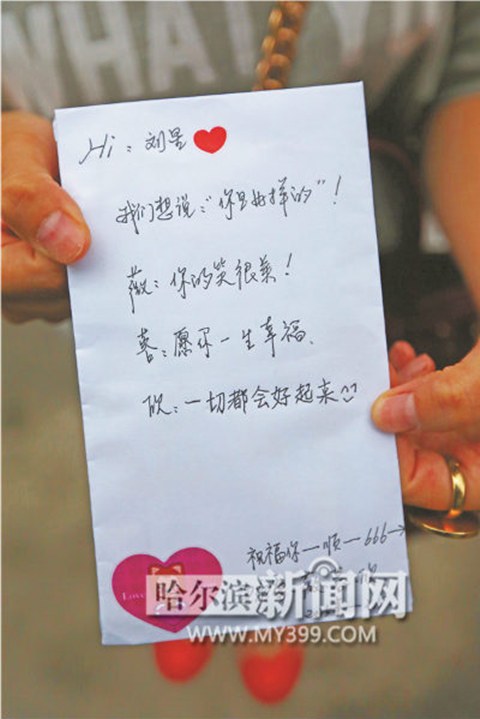 WHAT
Hi：刘昱
我们想说："你是好样的"！
薇：你的笑很美！
蓉：愿你一生幸福、
欣：一切都会好起来
祝福你一顺一666→
Love
哈尔滨新闻网
WWW.MY399.COM